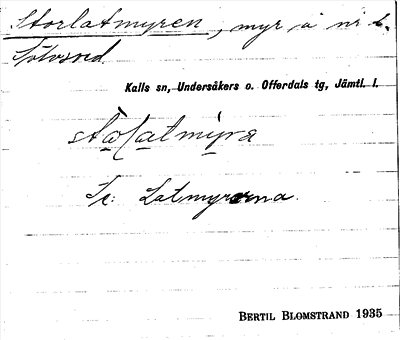 Storlatmyren, myr, å nr 6.
Sölvsved.
Kalls sn, Undersåkers o. Offerdals tg, Jämtl. l.
Se: Latmyrarna.
BERTIL BLOMSTRAND 1935